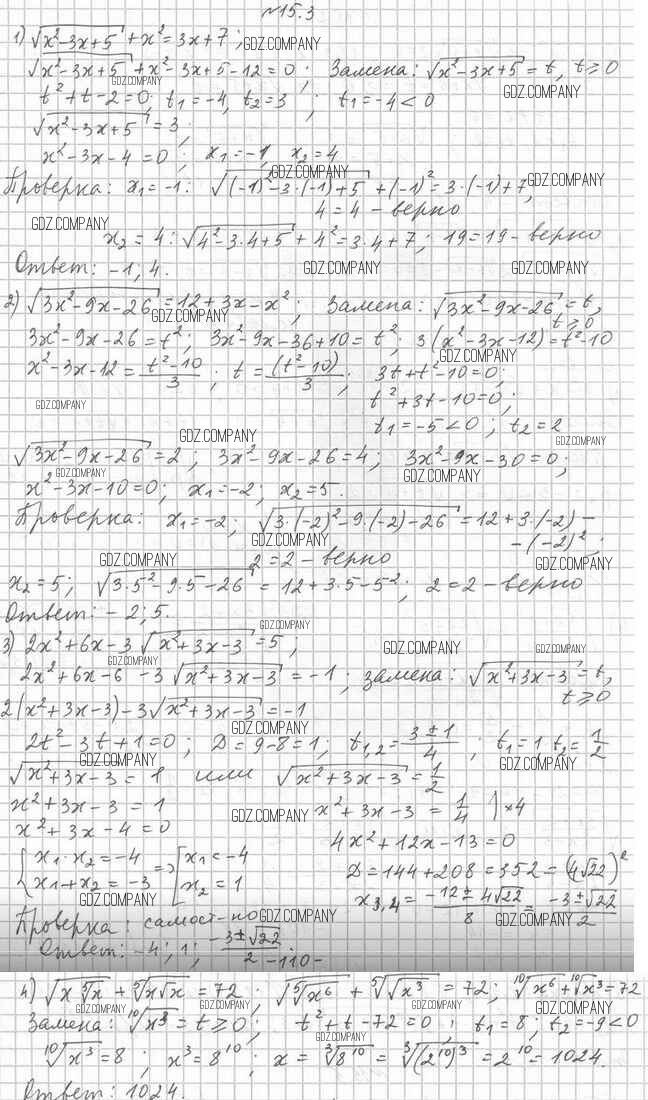 №15.3
1) √(x²-3x+5) + x² = 3x+7; GDZ.COMPANY
√(x²-3x+5) + x²-3x+5-12=0; Замена: √(x²-3x+5) = t, t≥0
GDZ.COMPANY GDZ.COMPANY
t²+t-2=0; t₁=-4, t₂=3; t₁=-4<0
√(x²-3x+5) = 3;
x²-3x-4=0; x₁=-1, x₂=4
GDZ.COMPANY
Проверка: x₁=-1: √((-1)²-3·(-1)+5) + (-1)² = 3·(-1)+7, GDZ.COMPANY
4=4 - верно
GDZ.COMPANY
x₂=4: √(4²-3·4+5) + 4² = 3·4+7; 19=19 - верно
Ответ: -1; 4. GDZ.COMPANY GDZ.COMPANY
2) √(3x²-9x-26) = 12+3x-x²; Замена: √(3x²-9x-26) = t,
GDZ.COMPANY t≥0
3x²-9x-26=t²; 3x²-9x-36+10=t²; 3(x²-3x-12)=t²-10
GDZ.COMPANY
x²-3x-12=(t²-10)/3; t=(t²-10)/3; 3t+t²-10=0;
GDZ.COMPANY t²+3t-10=0;
t₁=-5<0; t₂=2
GDZ.COMPANY GDZ.COMPANY
√(3x²-9x-26) = 2; 3x²-9x-26=4; 3x²-9x-30=0;
GDZ.COMPANY GDZ.COMPANY
x²-3x-10=0; x₁=-2; x₂=5.
Проверка: x₁=-2; √(3·(-2)²-9·(-2)-26) = 12+3·(-2)-
GDZ.COMPANY -(-2)²;
GDZ.COMPANY 2=2 - верно GDZ.COMPANY
x₂=5; √(3·5²-9·5-26) = 12+3·5-5²; 2=2 - верно
Ответ: -2; 5. GDZ.COMPANY
3) 2x²+6x-3√(x²+3x-3) = 5; GDZ.COMPANY GDZ.COMPANY
GDZ.COMPANY
2x²+6x-6-3√(x²+3x-3) = -1; замена: √(x²+3x-3) = t,
t≥0
2(x²+3x-3)-3√(x²+3x-3) = -1
GDZ.COMPANY
2t²-3t+1=0; D=9-8=1; t₁,₂=(3±1)/4; t₁=1, t₂=1/2
GDZ.COMPANY GDZ.COMPANY
√(x²+3x-3) = 1 или √(x²+3x-3) = 1/2
x²+3x-3=1 GDZ.COMPANY x²+3x-3=1/4 | ×4
x²+3x-4=0 4x²+12x-13=0
{ x₁·x₂=-4 => [ x₁=-4 D=144+208=352=(4√22)²
x₁+x₂=-3 x₂=1 x₃,₄=(-12±4√22)/8=(-3±√22)/2
GDZ.COMPANY GDZ.COMPANY
Проверка: самост-но GDZ.COMPANY
Ответ: -4; 1; (-3±√22)/2
-110-
4) √(x⁵√x) + ⁵√(x√x) = 72; √(⁵√x⁶) + ⁵√(√x³) = 72; ¹⁰√x⁶ + ¹⁰√x³ = 72
GDZ.COMPANY GDZ.COMPANY GDZ.COMPANY
Замена: ¹⁰√x³ = t≥0; t²+t-72=0; t₁=8; t₂=-9<0
GDZ.COMPANY
¹⁰√x³ = 8; x³=8¹⁰; x=³√8¹⁰ = ³√(2¹⁰)³ = 2¹⁰ = 1024.
Ответ: 1024.